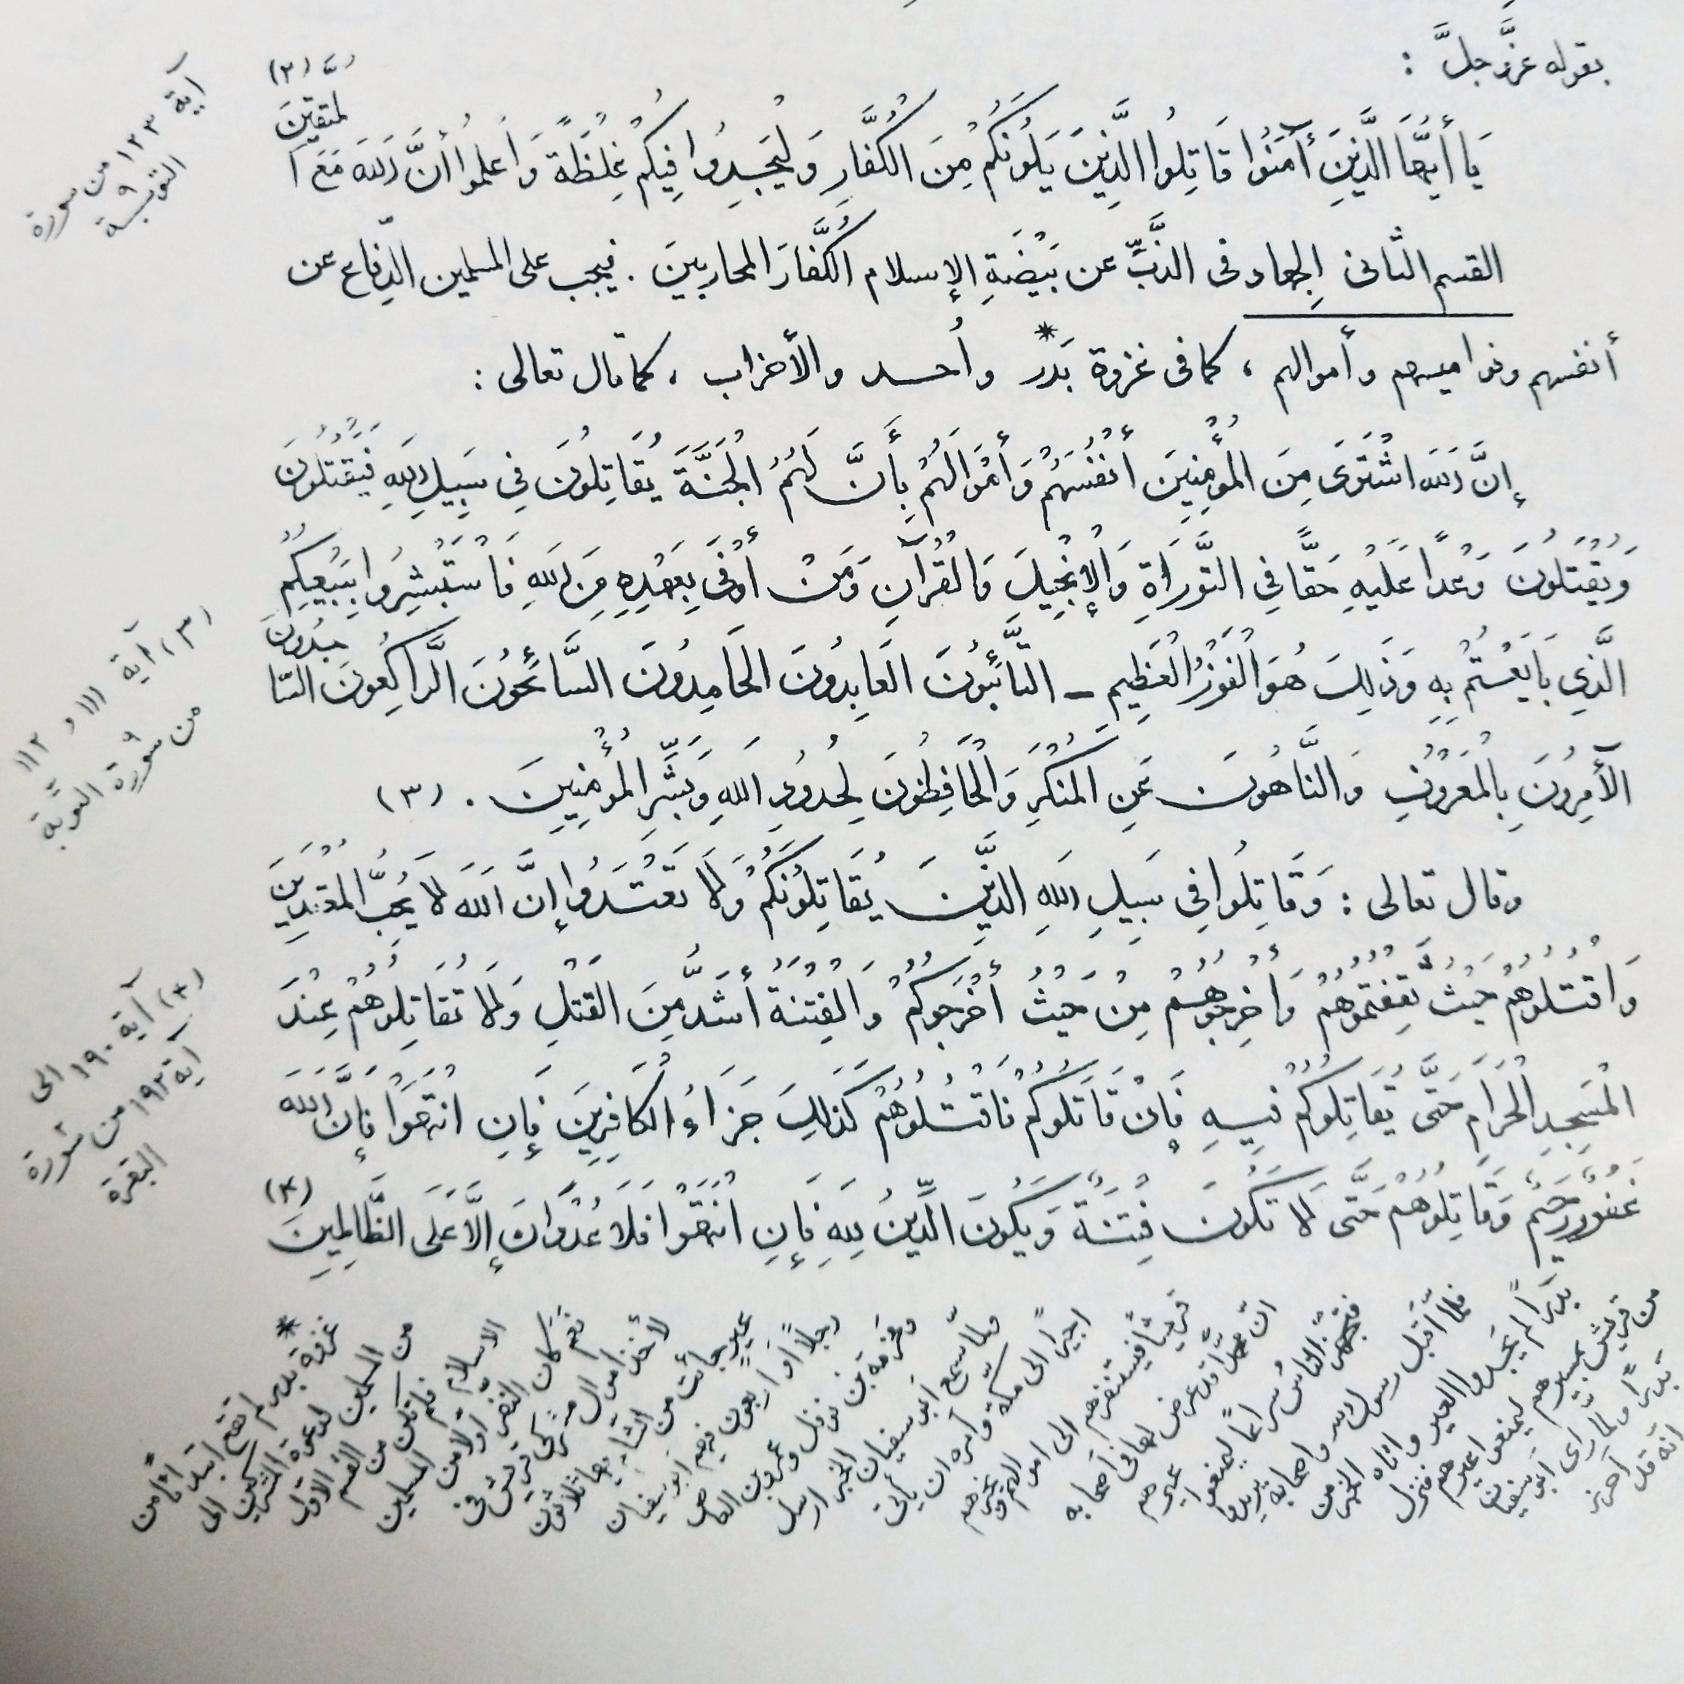 بقوله عزَّ وجلَّ :
يَا أَيُّهَا الَّذِينَ آمَنُوا قَاتِلُوا الَّذِينَ يَلُونَكُمْ مِنَ الْكُفَّارِ وَلْيَجِدُوا فِيكُمْ غِلْظَةً وَاعْلَمُوا أَنَّ اللهَ مَعَ الْمُتَّقِينَ (٢)
القسم الثانى الجهاد فى الذَّبِّ عن بَيْضَةِ الإسلام الكُفَّارَ المحاربينَ . فيجب على المسلمين الدِّفاع عن
أنفسهم ونواميسهم وأموالهم ، كما فى غزوة بَدْر * وأُحد والأحزاب ، كما قال تعالى :
إِنَّ اللهَ اشْتَرَى مِنَ الْمُؤْمِنِينَ أَنْفُسَهُمْ وَأَمْوَالَهُمْ بِأَنَّ لَهُمُ الْجَنَّةَ يُقَاتِلُونَ فِي سَبِيلِ اللهِ فَيَقْتُلُونَ
وَيُقْتَلُونَ وَعْدًا عَلَيْهِ حَقًّا فِي التَّوْرَاةِ وَالْإِنْجِيلِ وَالْقُرْآنِ وَمَنْ أَوْفَى بِعَهْدِهِ مِنَ اللهِ فَاسْتَبْشِرُوا بِبَيْعِكُمُ
الَّذِي بَايَعْتُمْ بِهِ وَذَلِكَ هُوَ الْفَوْزُ الْعَظِيمُ – التَّائِبُونَ الْعَابِدُونَ الْحَامِدُونَ السَّائِحُونَ الرَّاكِعُونَ السَّاجِدُونَ
الْآمِرُونَ بِالْمَعْرُوفِ وَالنَّاهُونَ عَنِ الْمُنْكَرِ وَالْحَافِظُونَ لِحُدُودِ اللهِ وَبَشِّرِ الْمُؤْمِنِينَ . (٣)
وقال تعالى : وَقَاتِلُوا فِي سَبِيلِ اللهِ الَّذِينَ يُقَاتِلُونَكُمْ وَلَا تَعْتَدُوا إِنَّ اللهَ لَا يُحِبُّ الْمُعْتَدِينَ
وَاقْتُلُوهُمْ حَيْثُ ثَقِفْتُمُوهُمْ وَأَخْرِجُوهُمْ مِنْ حَيْثُ أَخْرَجُوكُمْ وَالْفِتْنَةُ أَشَدُّ مِنَ الْقَتْلِ وَلَا تُقَاتِلُوهُمْ عِنْدَ
الْمَسْجِدِ الْحَرَامِ حَتَّى يُقَاتِلُوكُمْ فِيهِ فَإِنْ قَاتَلُوكُمْ فَاقْتُلُوهُمْ كَذَلِكَ جَزَاءُ الْكَافِرِينَ فَإِنِ انْتَهَوْا فَإِنَّ اللهَ
غَفُورٌ رَحِيمٌ وَقَاتِلُوهُمْ حَتَّى لَا تَكُونَ فِتْنَةٌ وَيَكُونَ الدِّينُ لِلهِ فَإِنِ انْتَهَوْا فَلَا عُدْوَانَ إِلَّا عَلَى الظَّالِمِينَ (٤)
آية ١٢٣ من سورة
التوبة ٩
(٣) آية ١١١ و ١١٢
من سورة ٩ التوبة
(٤) آية ١٩٠ الى
آية ١٩٢ من سورة ٢
البقرة
* غزوة بدر لم تقع ابتداءً من
من المسلمين لدعوة المشركين الى
الاسلام فلم تكن من القسم الاول
نعم كان النضر اوّلا من المسلمين
لأخذ اموال مشركى قريش فى
عير جائت من الشام فيها ثلاثون
رجلاً او اربعون فيهم ابوسفيان
ومخرمة بن نوفل وعمرو بن العاص
ولمّا سمع ابوسفيان الخبر ارسل
اجيرًا الى مكة وأمره ان يأتى
قريشاً فيستنفرهم الى اموالهم ويخبرهم
انّ محمدًا قد عرض لها فى أصحابه
فتجهّز الناس سراعًا ليمنعوا عيرهم
فلمّا أقبل رسول الله واصحابه يريدوا
بدرًا لم يجدوا العير واتاه الخبر من
من قريش بمسيرهم ليمنعوا عيرهم فنزل
بدرًا ولمّا رأى ابوسفيان
انه قد أحرز